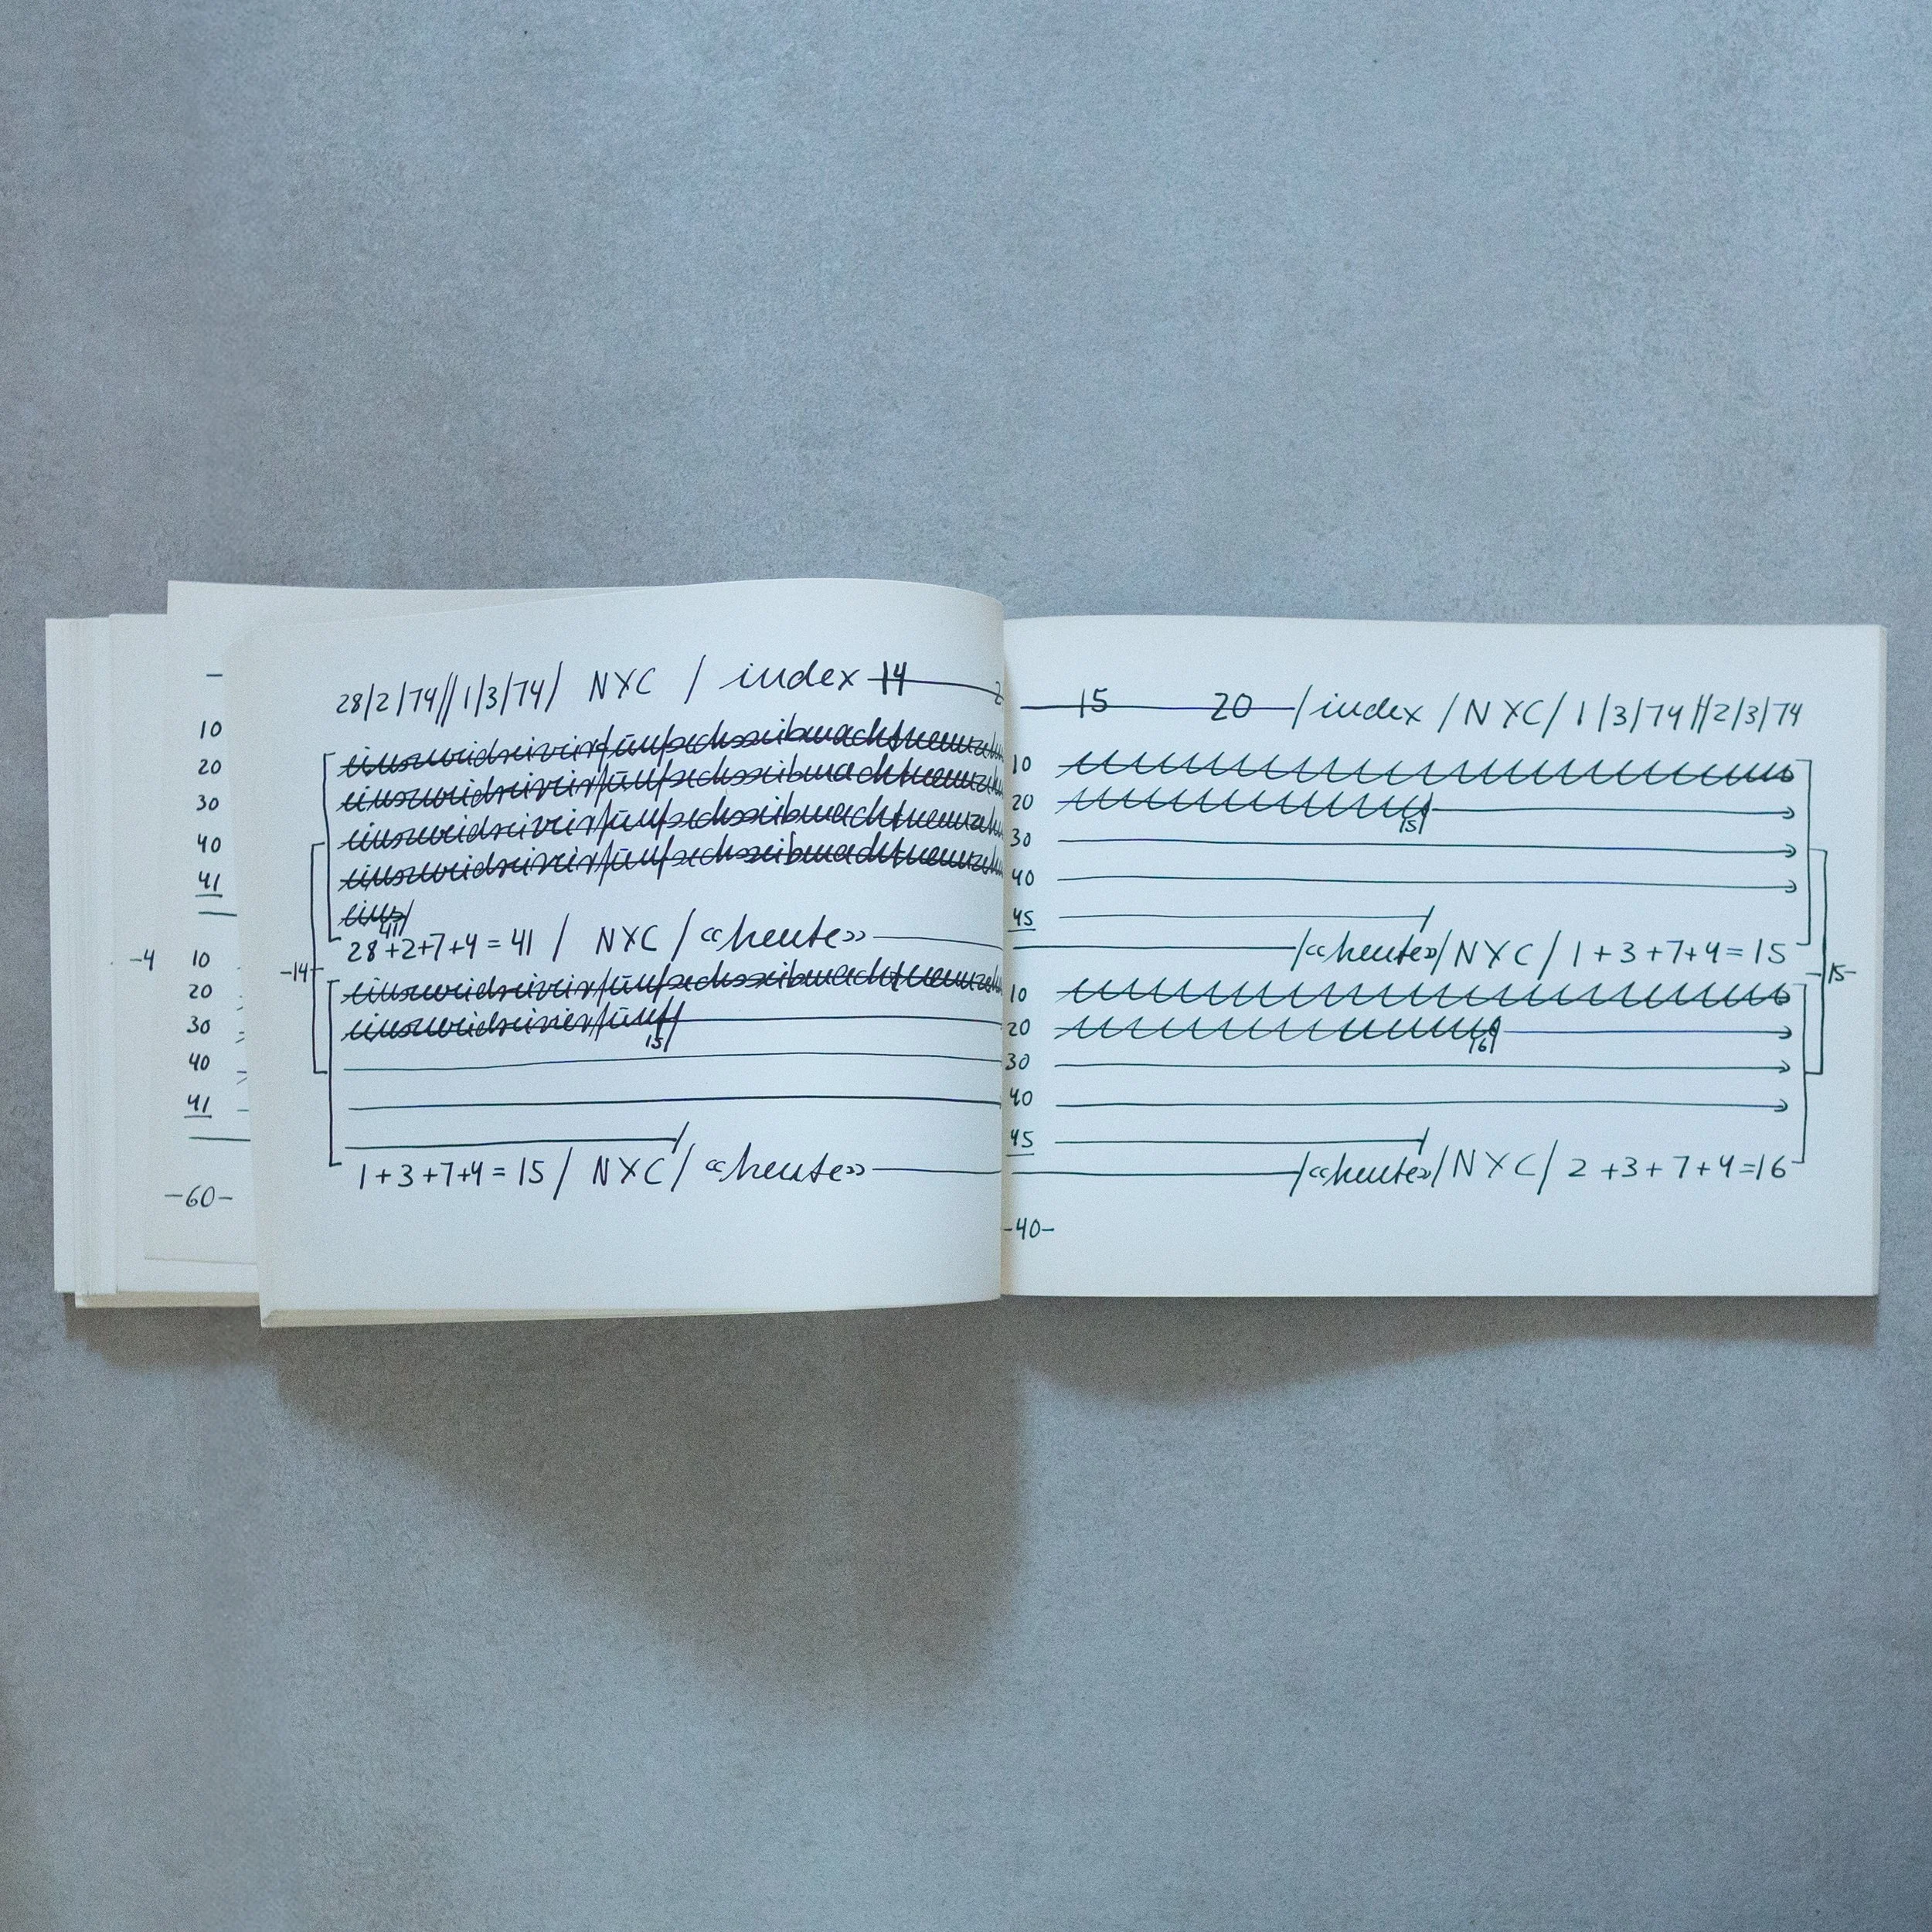 10
20
30
40
41
-4
10
20
30
40
41
-60-
28/2/74//1/3/74/ NYC / index 14
einszweidreivierfünfsechssiebenachtneunzehn
einszweidreivierfünfsechssiebenachtneunzehn
einszweidreivierfünfsechssiebenachtneunzehn
einszweidreivierfünfsechssiebenachtneunzehn
eins/
41
28+2+7+4=41 / NYC / «heute»
-14-
einszweidreivierfünfsechssiebenachtneunzehn
einszweidreivierfünf/
15
1+3+7+4=15 / NYC / «heute»
15 20 /index / NYC / 1/3/74//2/3/74
10
20 15
30
40
45
/«heute»/NYC/ 1+3+7+4=15
-15-
10
20 16
30
40
45
/«heute»/NYC/ 2+3+7+4=16
-40-